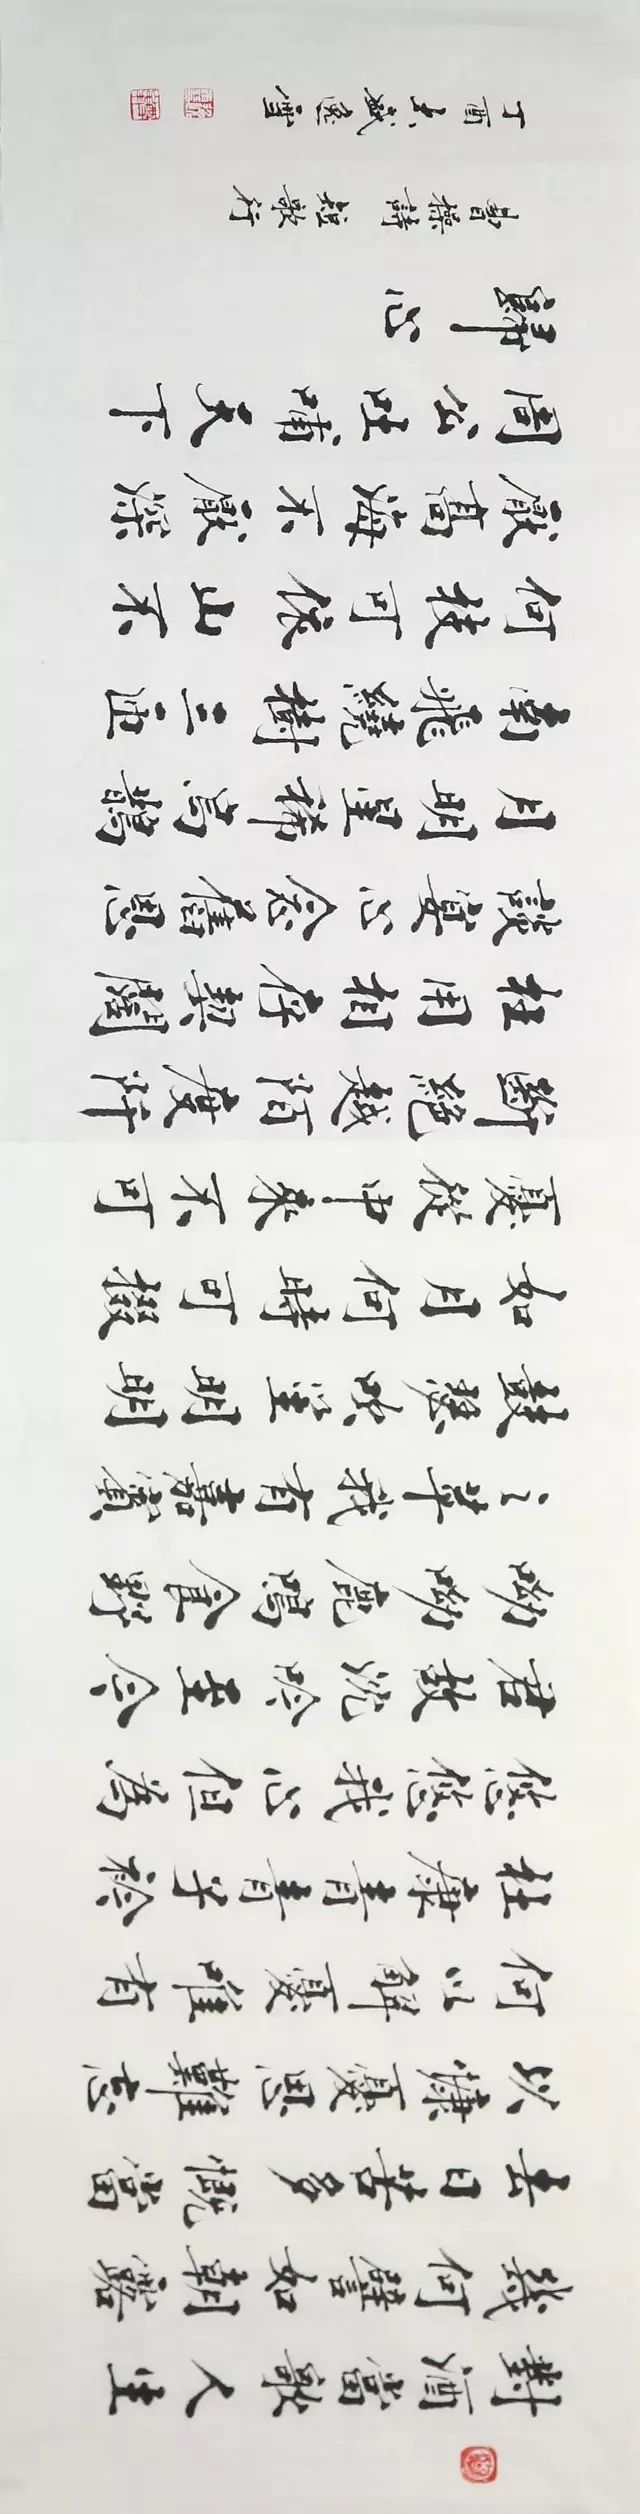 對酒當歌人生
幾何譬如朝露
去日苦多慨當
以慷憂思難忘
何以解憂唯有
杜康青青子衿
悠悠我心但為
君故沈吟至今
呦呦鹿鳴食野
之苹我有嘉賓
鼓瑟吹笙明明
如月何時可掇
憂從中来不可
斷絕越陌度阡
枉用相存契闊
談宴心念舊恩
月明星稀烏鵲
南飛繞樹三匝
何枝可依山不
厭高海不厭深
周公吐哺天下
歸心
曹操詩短歌行
丁酉